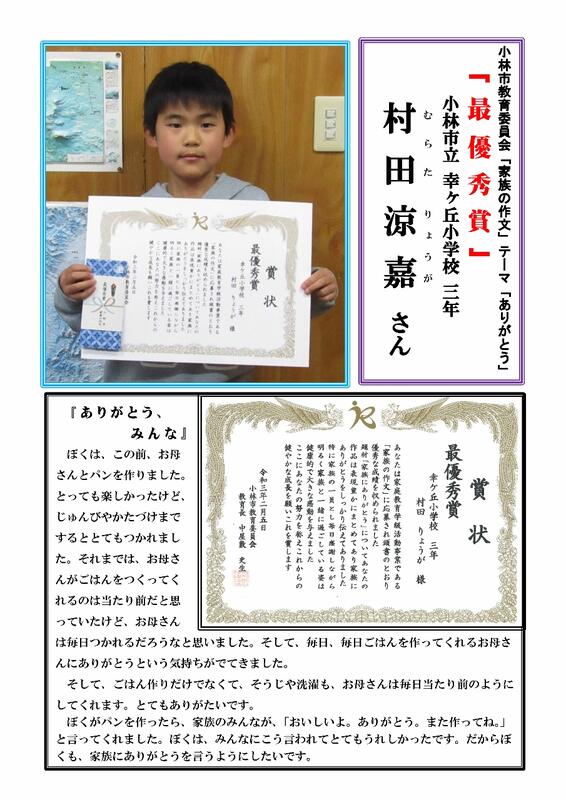 小林市教育委員会「家族の作文」テーマ「ありがとう」
『最優秀賞』
小林市立 幸ヶ丘小学校 三年
むらた りょうが
村田涼嘉 さん
賞状
最優秀賞
幸ケ丘小学校 三年
村田 りょうが 様
『ありがとう、
みんな』
ぼくは、この前、お母
さんとパンを作りました。
とっても楽しかったけど、
じゅんびやかたづけまで
するととてもつかれまし
た。それまでは、お母さ
んがごはんをつくってく
れるのは当たり前だと思
っていたけど、お母さん
は毎日つかれるだろうなと思いました。そして、毎日、毎日ごはんを作ってくれるお母さ
んにありがとうという気持ちがでてきました。
そして、ごはん作りだけでなくて、そうじや洗濯も、お母さんは毎日当たり前のように
してくれます。とてもありがたいです。
ぼくがパンを作ったら、家族のみんなが、「おいしいよ。ありがとう。また作ってね。」
と言ってくれました。ぼくは、みんなにこう言われてとてもうれしかったです。だからぼ
くも、家族にありがとうを言うようにしたいです。
賞状
最優秀賞
幸ケ丘小学校 三年
村田 りょうが 様
あなたは家庭教育学級活動事業である
「家族の作文」に応募され頭書のとおり
優秀な成績を収められました
題材「家族にありがとう」についてあなたの
作品は表現豊かにまとめてあり家族に
ありがとうをしっかり伝えてありました
特に家族の一員として毎日感謝しながら
明るく家族と一緒に過ごしている姿は
健康的で大きな感動を与えました
ここにあなたの努力を称えこれからの
健やかな成長を願いこれを賞します
令和三年二月五日
小林市教育委員会
教育長 中屋敷 史生